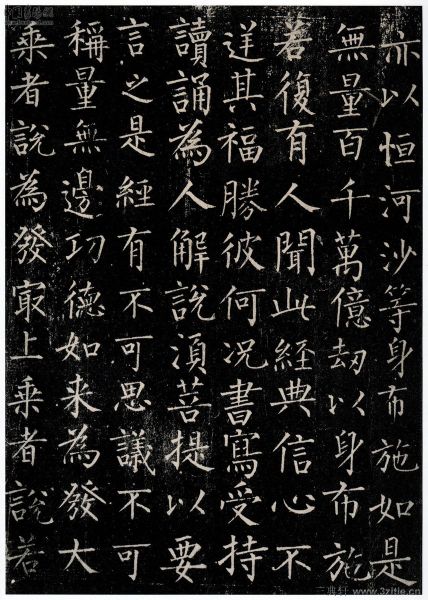 亦以恒河沙等身布施如是
無量百千萬億劫以身布施
若復有人聞此經典信心不
逆其福勝彼何況書寫受持
讀誦為人解說湏菩提以要
言之是經有不可思議不可
稱量無邊功德如来為發大
乘者說為發冣上乘者說若
三典轩 www.3zitie.cn